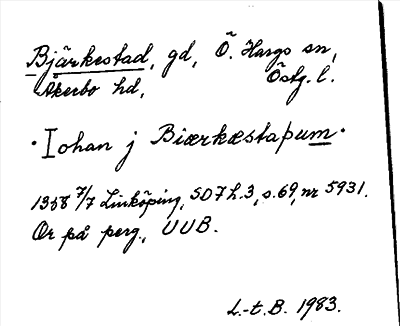 Bjärkestad, gd, Ö. Hargs sn,
Åkerbo hd, Östg. l.
· Iohan j Biærkæstaþum ·
1358 7/7 Linköping, SD7 h.3, s.69, nr 5931.
Or på perg., UUB.
L.-t. B. 1983.